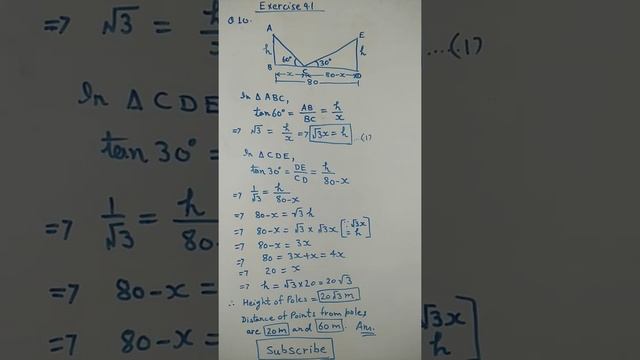 Exercise 9.1
Q 10.
A
E
h
60°
30°
h
B
C
D
x
80-x
80
In Δ ABC,
tan60° = AB/BC = h/x
=> √3 = h/x => √3x = h ...(1)
In Δ CDE,
tan30° = DE/CD = h/80-x
=> 1/√3 = h/80-x
=> 80-x = √3 h
=> 80-x = √3 x √3x [∵ √3x = h]
=> 80-x = 3x
=> 80 = 3x+x = 4x
=> 20 = x
=> h = √3 x 20 = 20√3
∴ Height of Poles = 20√3 m
Distance of Points from poles
are 20m and 60m. Ans.
Subscribe
=> √3 =
In Δ CDE
tan 30° =
=> 1/√3 = h/80
=> 80-x =
=> 80-x =
h
x
....(1)
√3x
h